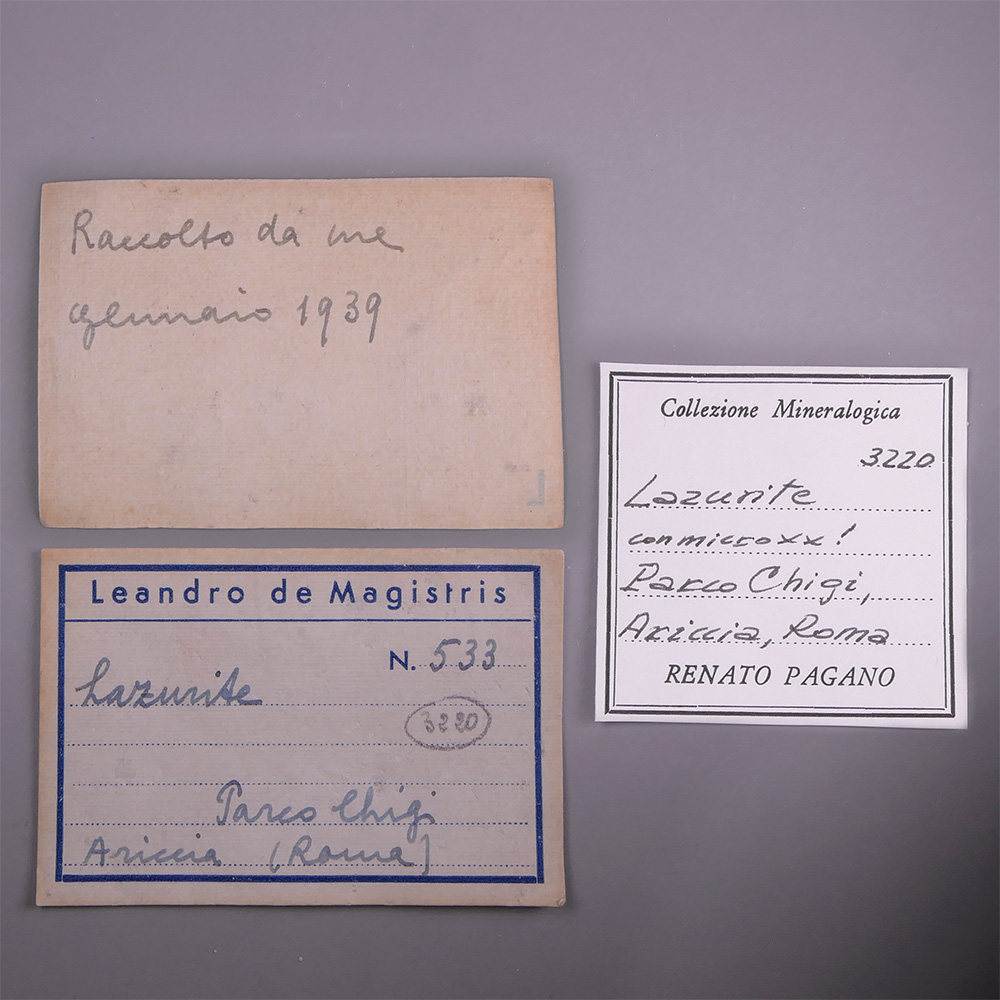 Raccolto da me
gennaio 1939
Leandro de Magistris
N. 533
Lazurite
3220
Parco Chigi
Ariccia (Roma)
Collezione Mineralogica
3220
Lazurite
con micro xx!
Parco Chigi,
Ariccia, Roma
RENATO PAGANO